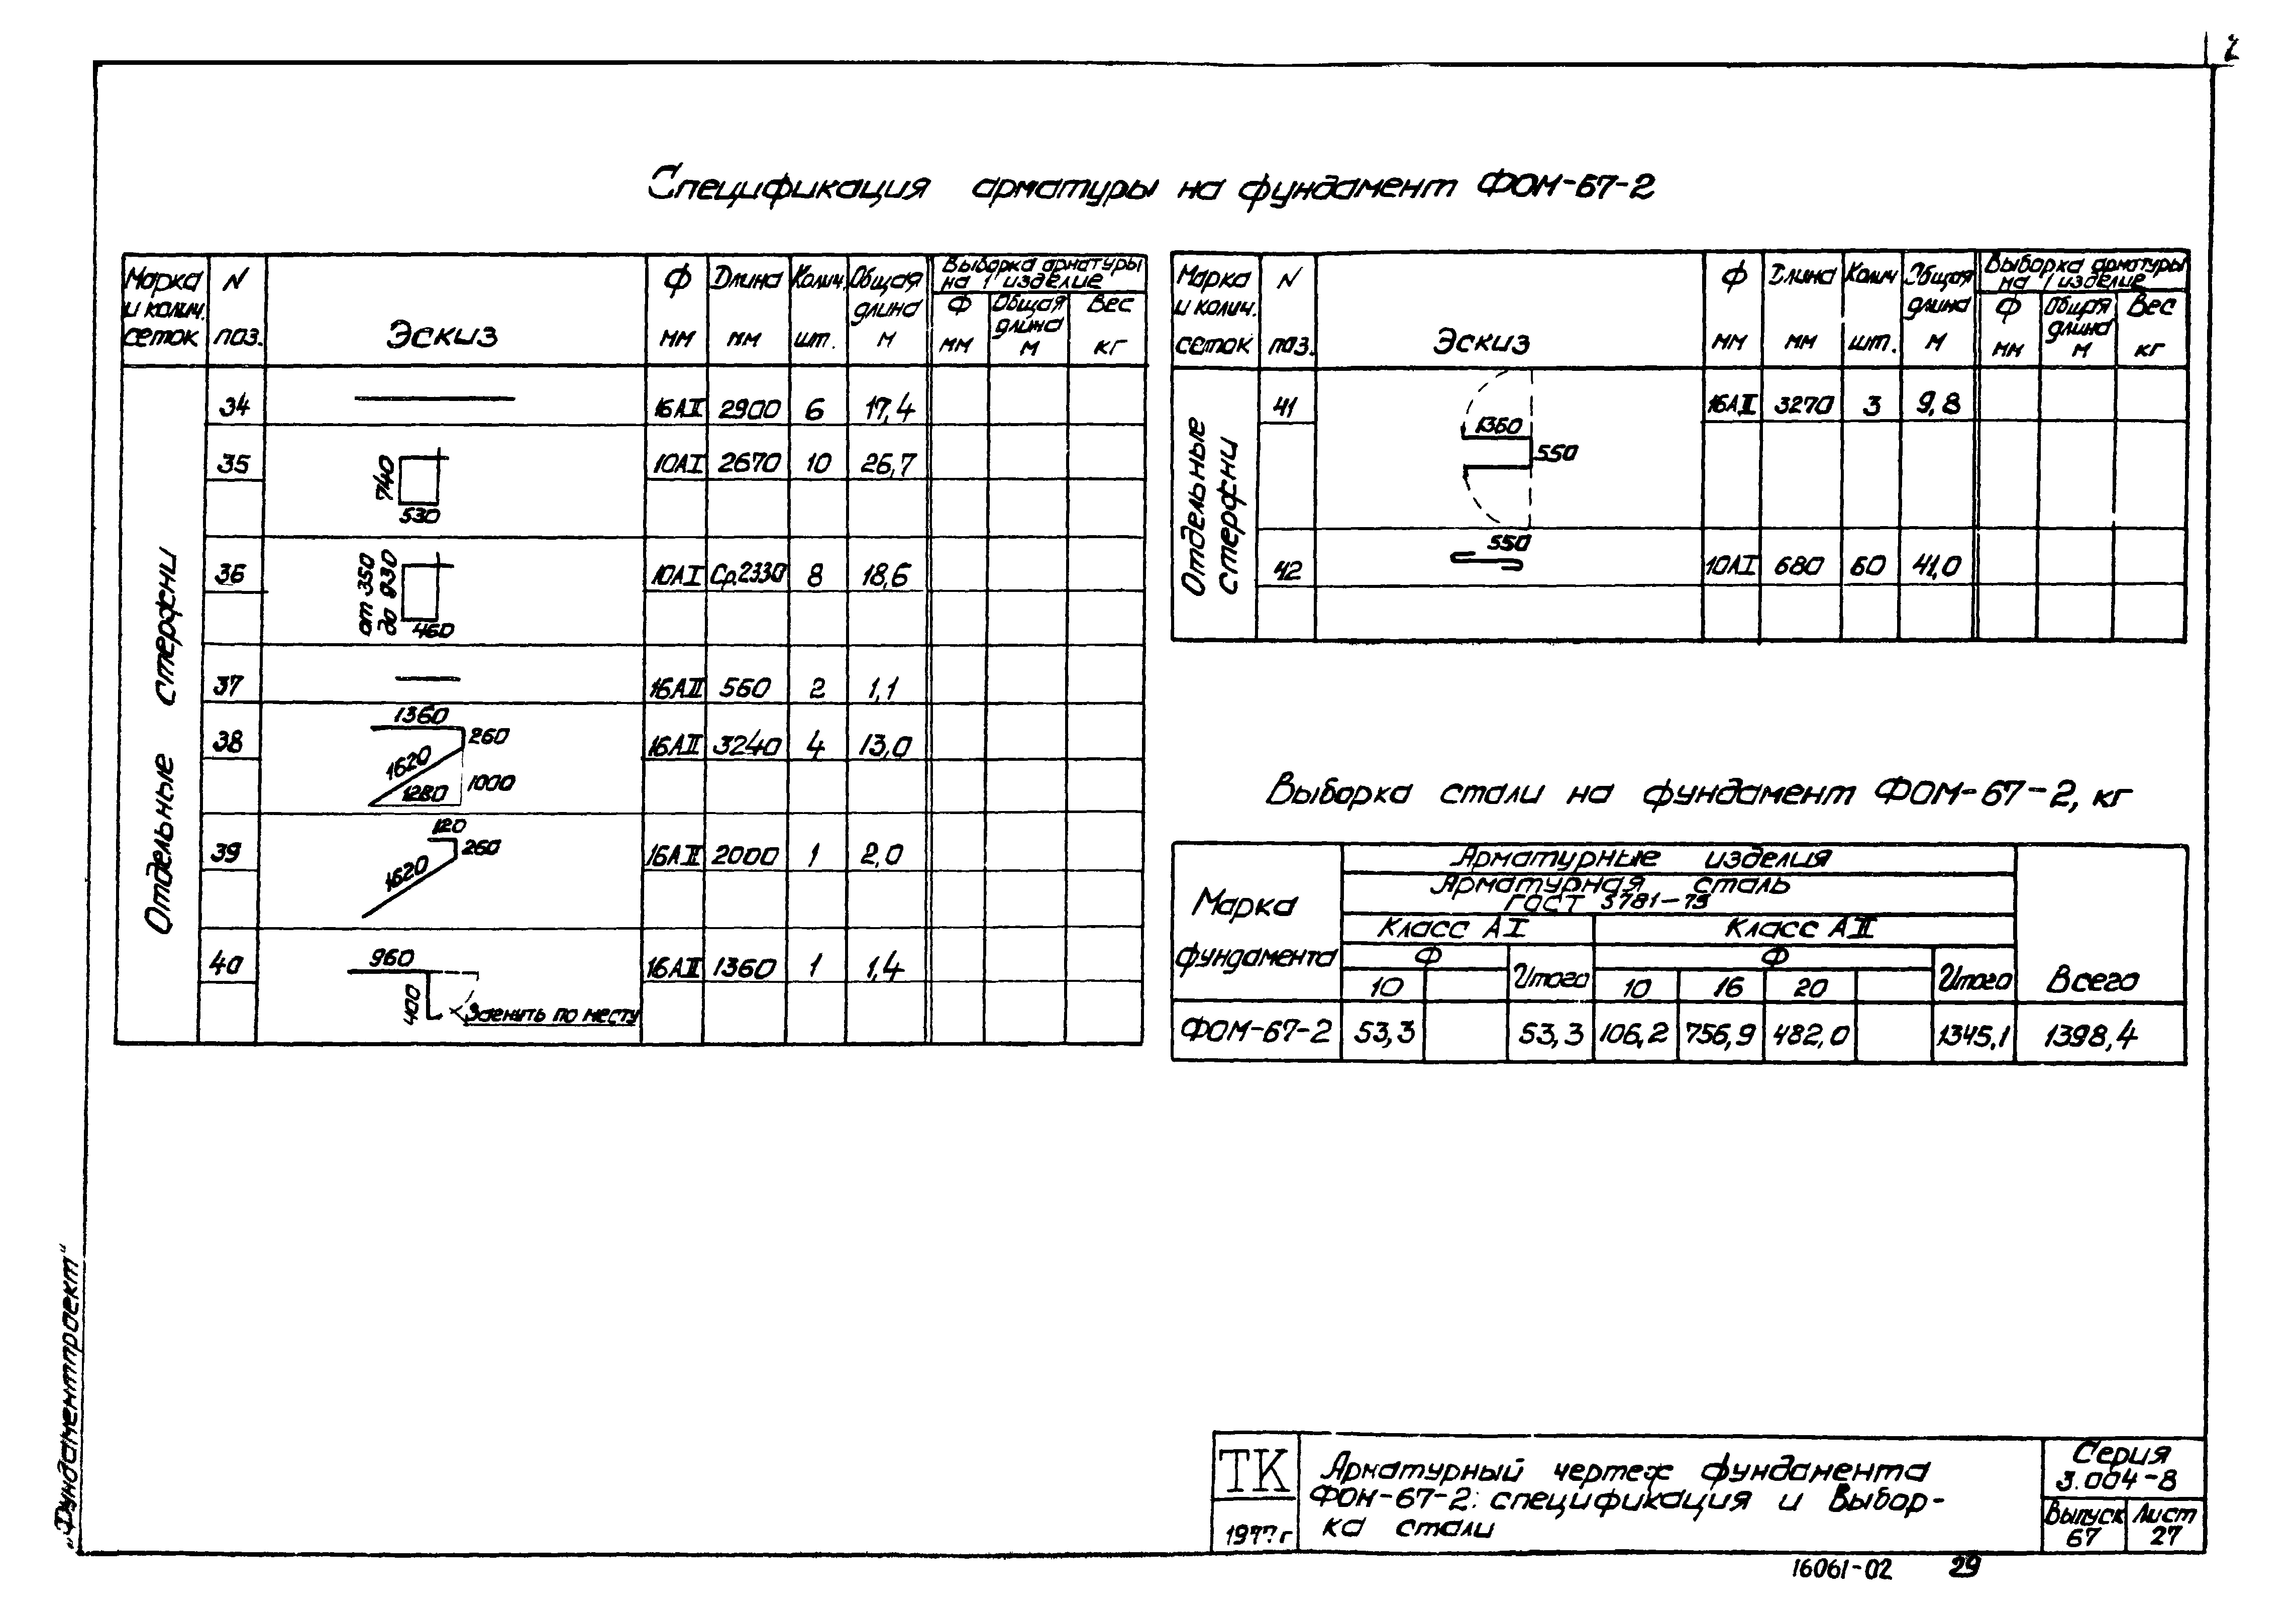 Спецификация арматуры на фундамент ФОМ-67-2
Марка и колич. сеток | N поз. | Эскиз | Ф мм | Длина мм | Колич. шт. | Общая длина м | Выборка арматуры на 1 изделие
Ф мм | Общая длина м | Вес кг
Отдельные стержни
34 | 16АII | 2900 | 6 | 17,4
35 | 740 530 | 10АI | 2670 | 10 | 26,7
36 | от 350 до 930 460 | 10АI | Ср.2330 | 8 | 18,6
37 | 16АII | 560 | 2 | 1,1
38 | 1360 260 1620 1280 1000 | 16АII | 3240 | 4 | 13,0
39 | 120 260 1620 | 16АII | 2000 | 1 | 2,0
40 | 960 400 Загнуть по месту | 16АII | 1360 | 1 | 1,4
Марка и колич. сеток | N поз. | Эскиз | Ф мм | Длина мм | Колич шт. | Общая длина м | Выборка арматуры на 1 изделие
Ф мм | Общая длина м | Вес кг
Отдельные стержни
41 | 1360 550 | 16АII | 3270 | 3 | 9,8
42 | 550 | 10АI | 680 | 60 | 41,0
Выборка стали на фундамент ФОМ-67-2, кг
Марка фундамента | Арматурные изделия | Всего
Арматурная сталь
ГОСТ 5781-75
Класс АI | Класс АII
Ф | Итого | Ф | Итого
10 | 10 | 16 | 20
ФОМ-67-2 | 53,3 | 53,3 | 106,2 | 756,9 | 482,0 | 1345,1 | 1398,4
„Фундаментпроект"
ТК
1977г
Арматурный чертеж фундамента
ФОМ-67-2: спецификация и выбор-
ка стали
Серия
3.004-8
Выпуск
67
Лист
27
16061-02 29